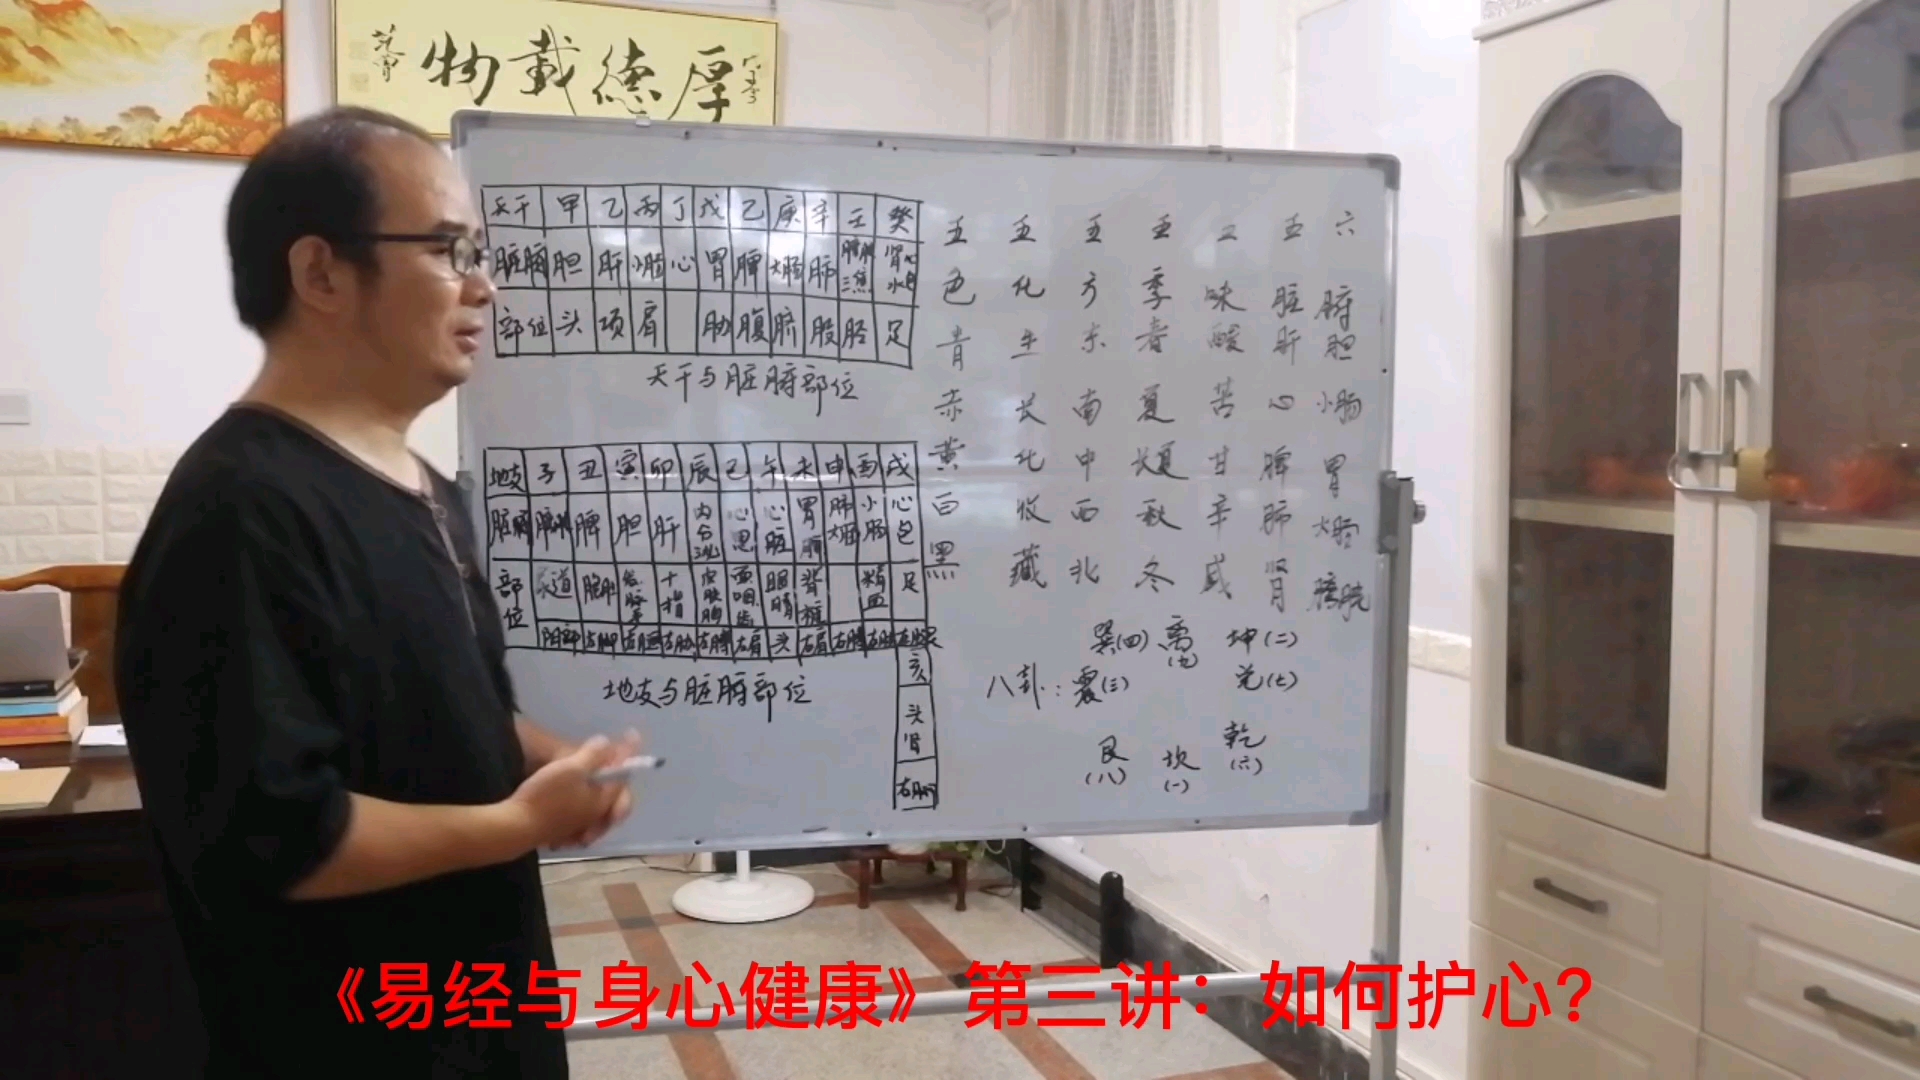 物載德厚
天干 甲 乙 丙 丁 戊 己 庚 辛 壬 癸
脏腑 胆 肝 小肠 心 胃 脾 大肠 肺 膀胱三焦 肾水心包
部位 头 项 肩 肋 腹 脐 股 胫 足
天干与脏腑部位
地支 子 丑 寅 卯 辰 巳 午 未 申 酉 戌
脏腑 脾 胆 肝 心思 心脏 胃脾 肺大肠 小肠 心包
部位 尿道 十指 皮肤胸 面咽齿 眼睛 脊梁 精血 足
阴部 左脚 左腿 左肋 左膊 左肩 头 右肩 右膊 右肋
地支与脏腑部位
亥
头肾
右脚
五色 五化 五方 五季 五味 五脏 六腑
青 生 东 春 酸 肝 胆
赤 长 南 夏 苦 心 小肠
黄 化 中 长夏 甘 脾 胃
白 收 西 秋 辛 肺 大肠
黑 藏 北 冬 咸 肾 膀胱
巽(四) 离(九) 坤(二)
八卦: 震(三) 兑(七)
艮(八) 坎(一) 乾(六)
《易经与身心健康》第三讲：如何护心？